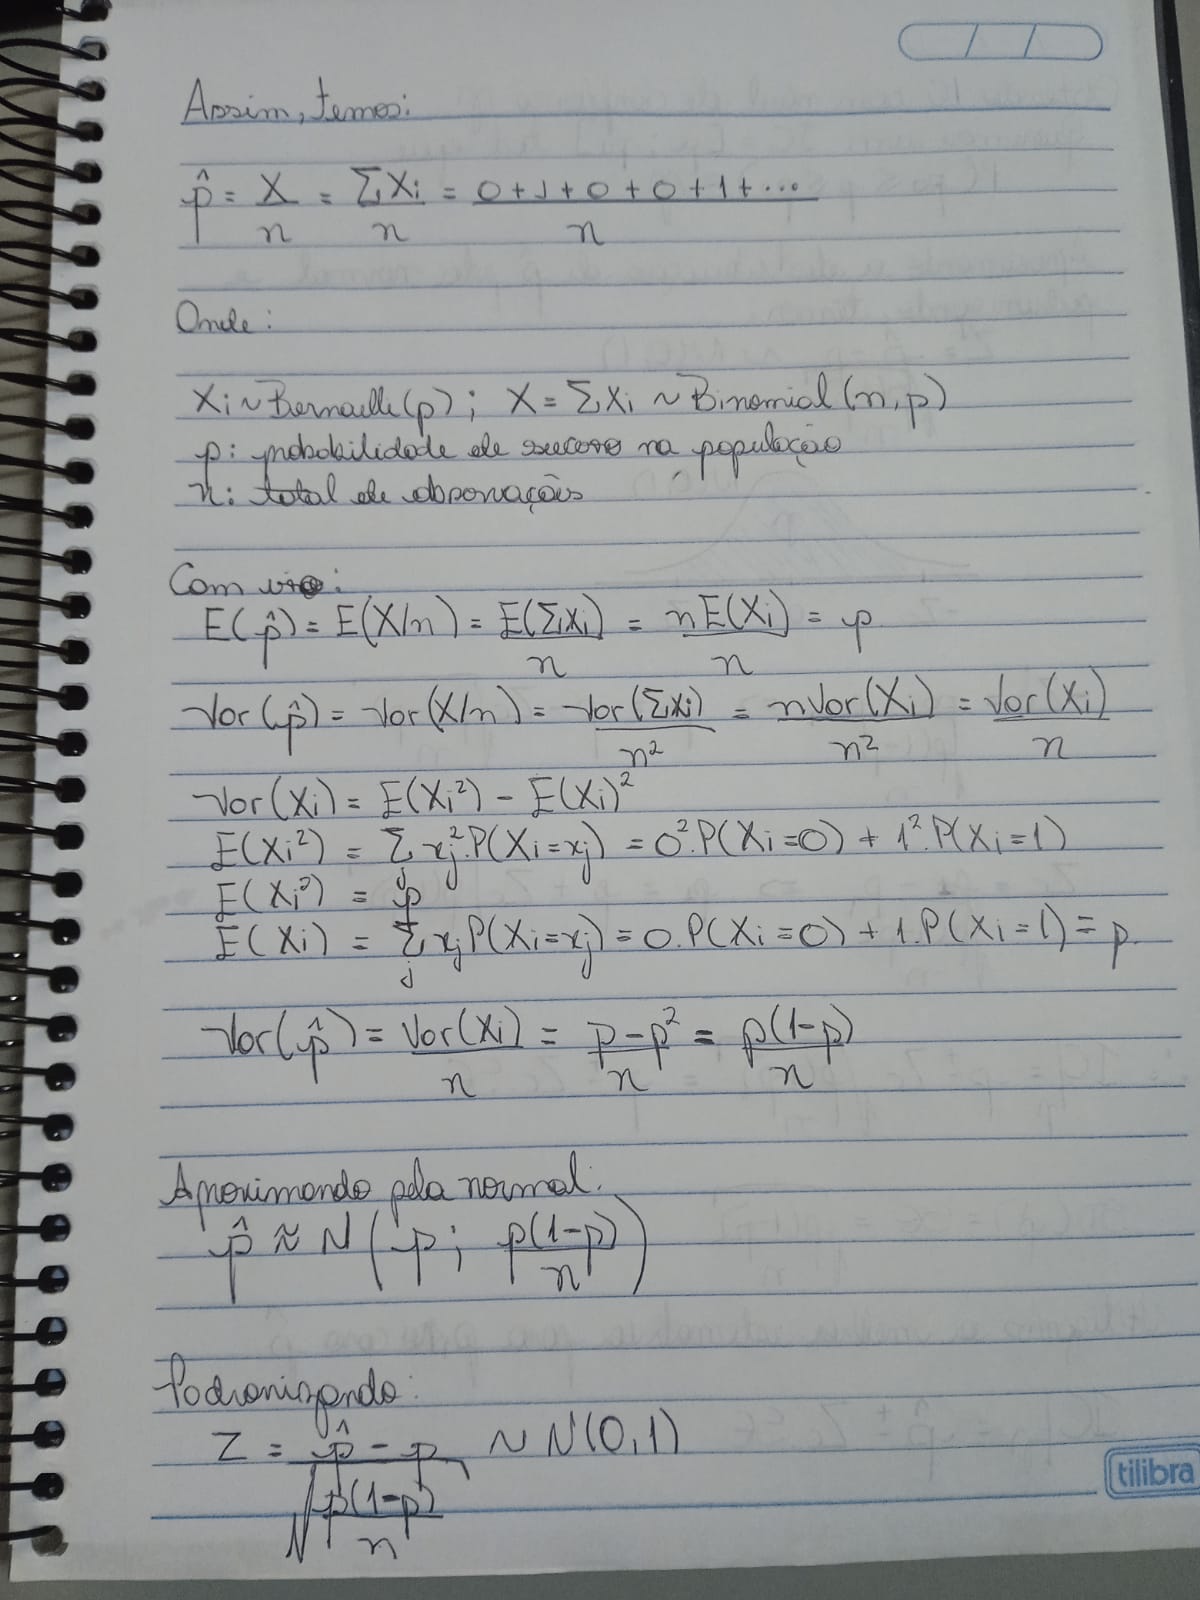 Assim, temos:
p̂ = X/n = ΣXi/n = (0 + 1 + 0 + 0 + 1 + ...)/n
Onde:
Xi ~ Bernoulli(p); X = ΣXi ~ Binomial(n, p)
p: probabilidade de sucesso na população
n: total de observações
Com isso:
E(p̂) = E(X/n) = E(ΣXi)/n = nE(Xi)/n = p
Var(p̂) = Var(X/n) = Var(ΣXi)/n² = nVar(Xi)/n² = Var(Xi)/n
Var(Xi) = E(Xi²) - E(Xi)²
E(Xi²) = Σj xj².P(Xi=xj) = 0².P(Xi=0) + 1².P(Xi=1)
E(Xi²) = p
E(Xi) = Σj xjP(Xi=xj) = 0.P(Xi=0) + 1.P(Xi=1) = p
Var(p̂) = Var(Xi)/n = (p - p²)/n = p(1-p)/n
Aproximando pela normal:
p̂ ≈ N(p; p(1-p)/n)
Padronizando:
Z = (p̂ - p)/√(p(1-p)/n) ~ N(0,1)
tilibra